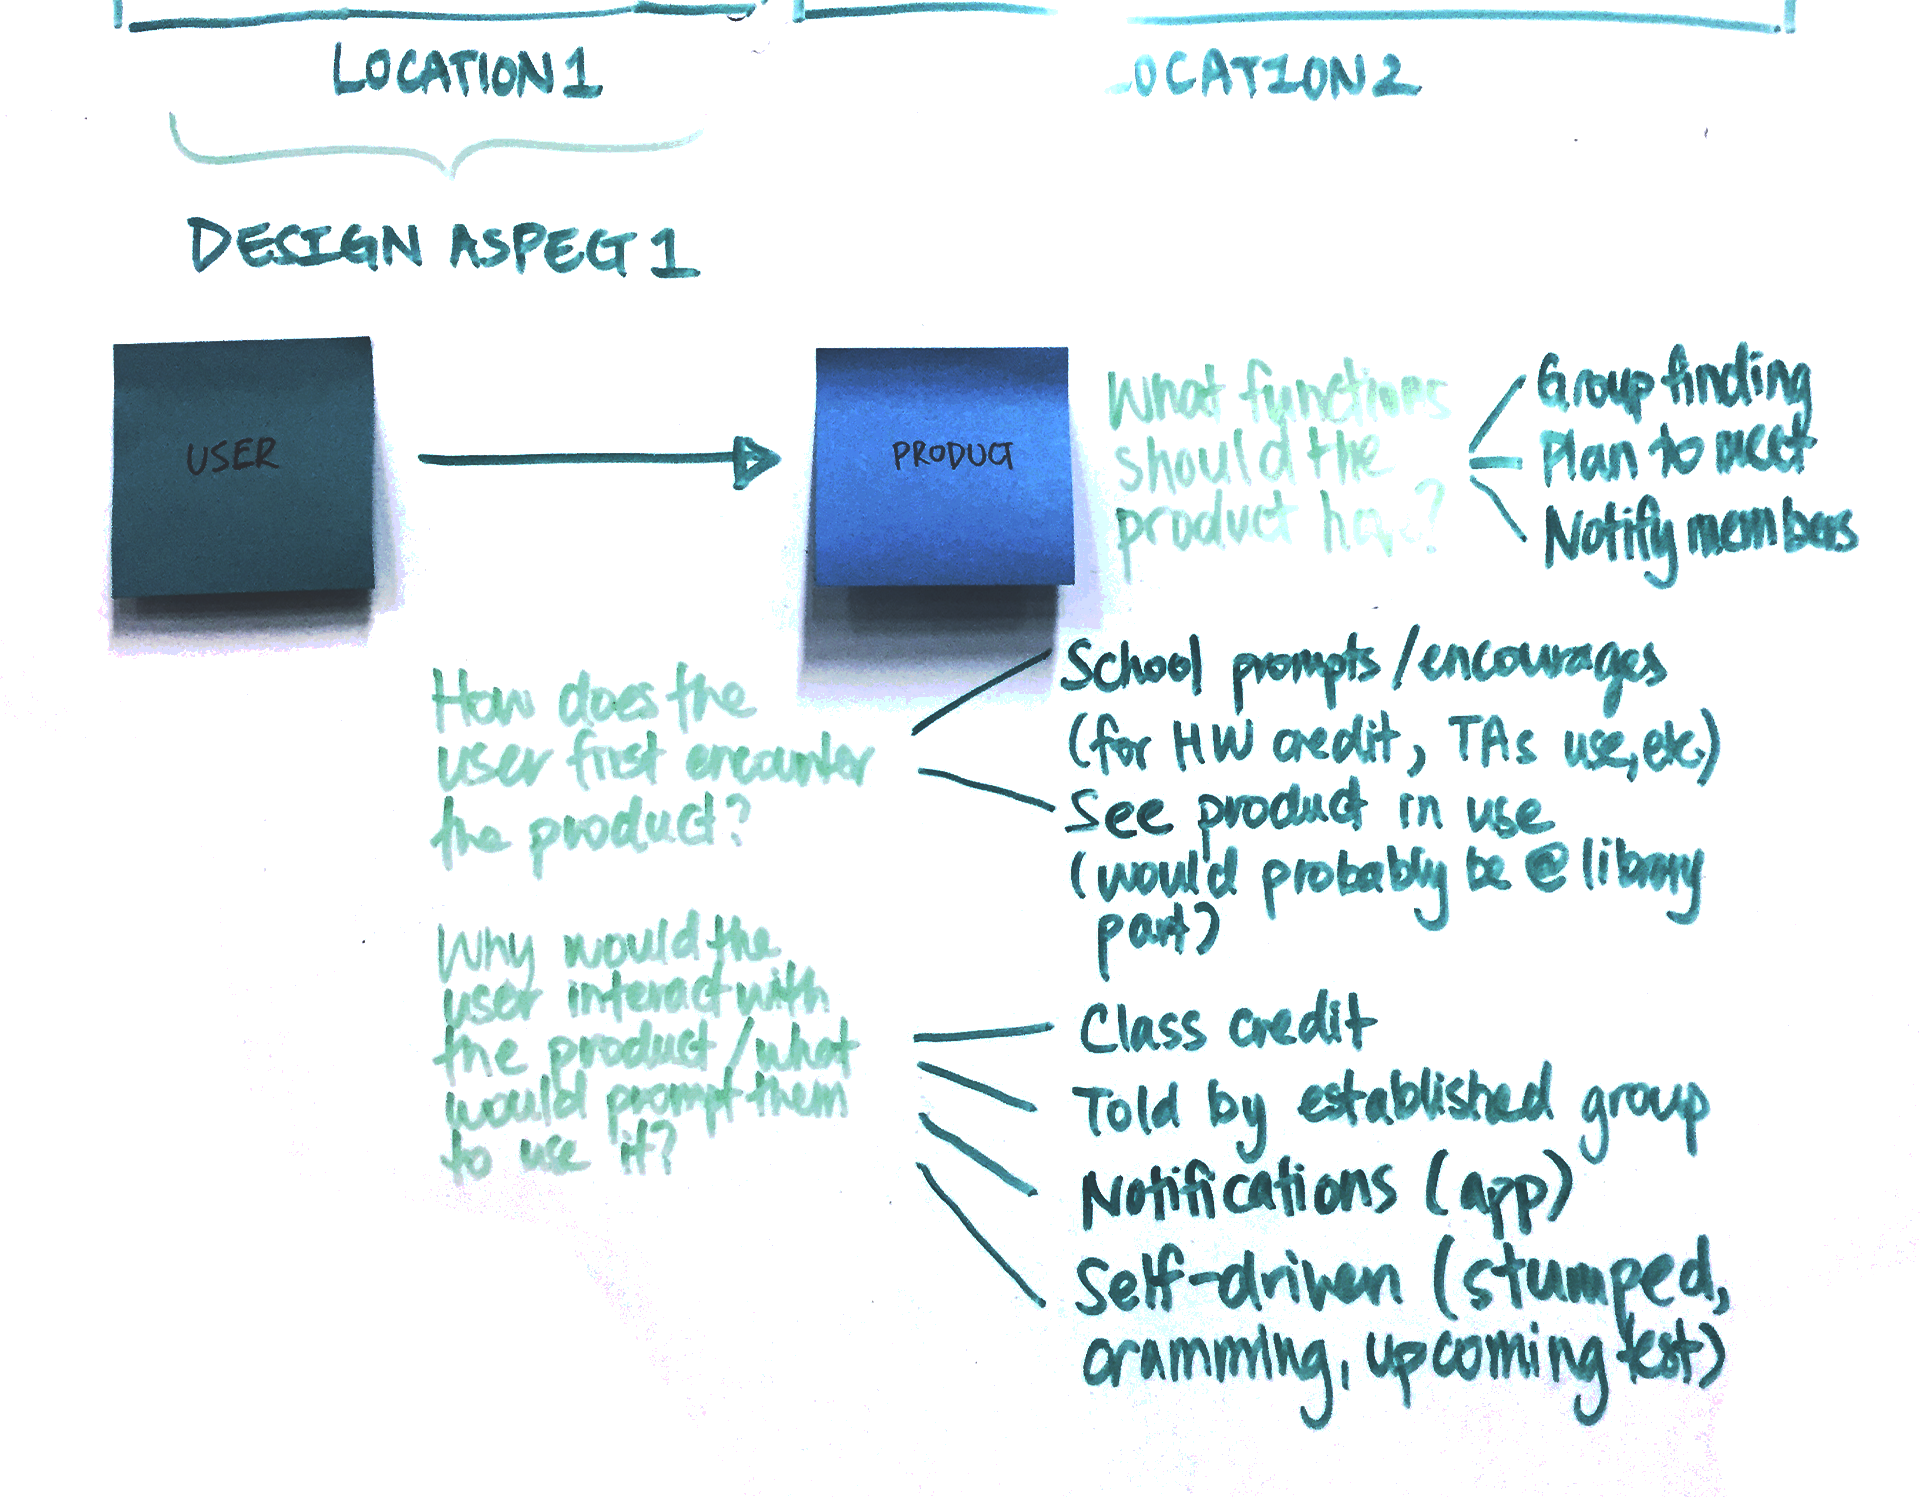 LOCATION 1
LOCATION 2
DESIGN ASPECT 1
USER
PRODUCT
What functions
should the
product have?
Group finding
Plan to meet
Notify members
How does the
user first encounter
the product?
School prompts/encourages
(for HW credit, TAs use, etc.)
See product in use
(would probably be @ library
part)
Why would the
user interact with
the product/what
would prompt them
to use it?
Class credit
Told by established group
Notifications (app)
Self-driven (stumped,
cramming, upcoming test)